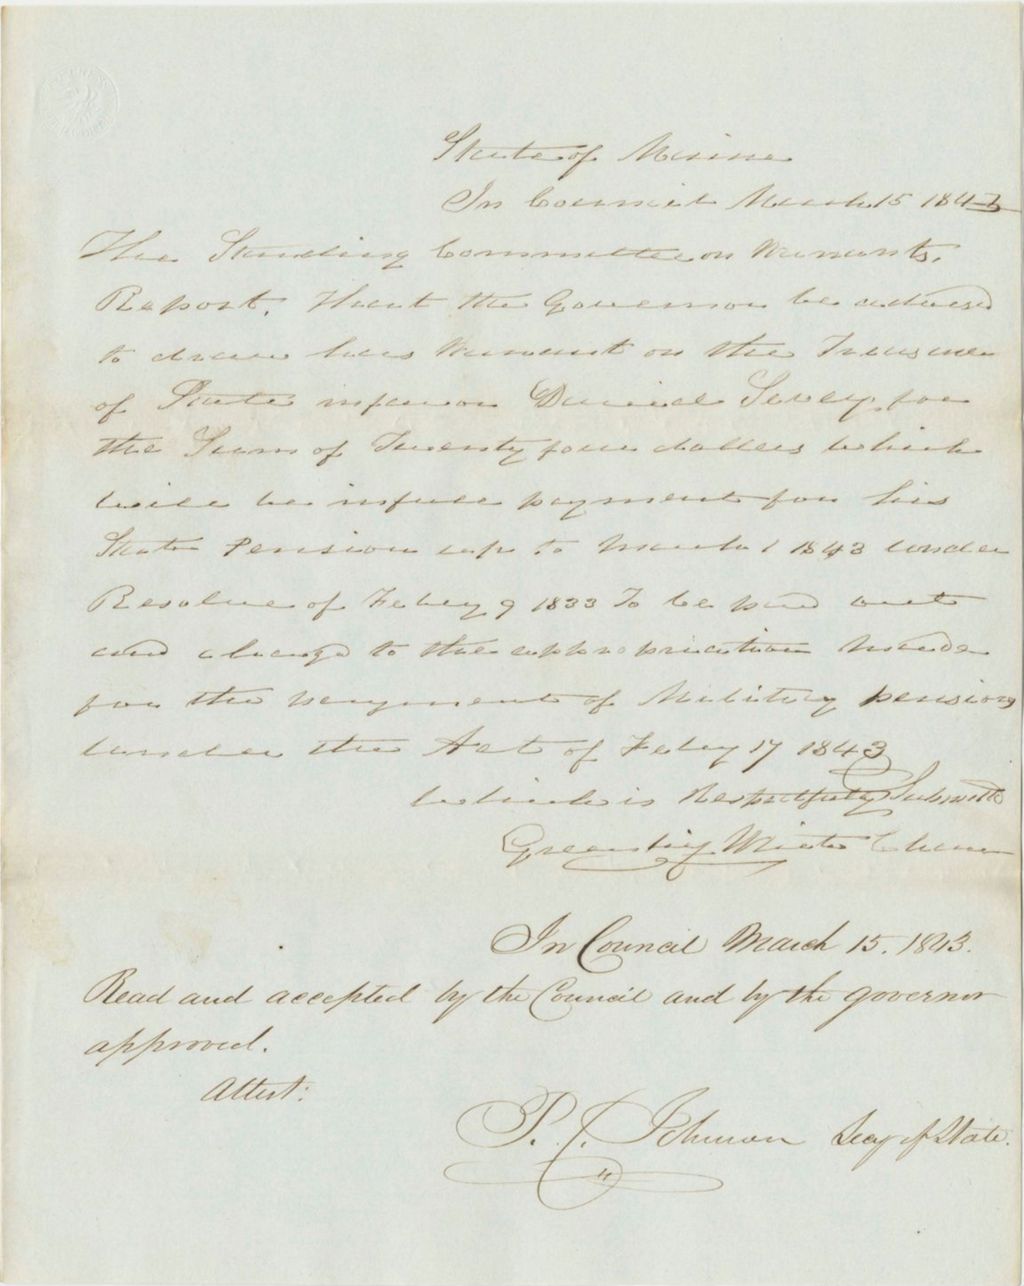 State of Maine
In Council March 15 1843
The Standing Committee on Warrants,
Report, That the Governor be advised
to draw his Warrant on the Treasurer
of State in favor Daniel Sevey for
the Sum of Twenty four dollars which
will be in full payment for his
State Pension up to March 1 1843 under
Resolve of Feby 9 1833 To be paid out
and charged to the appropriation made
for the payment of Military pensions
under the Act of Feby 17 1843
which is Respectfully Submitted
Greenlief White Chairman
In Council March 15. 1843.
Read and accepted by the Council and by the governor
approved.
Attest:
P. C. Johnson Secy of State.